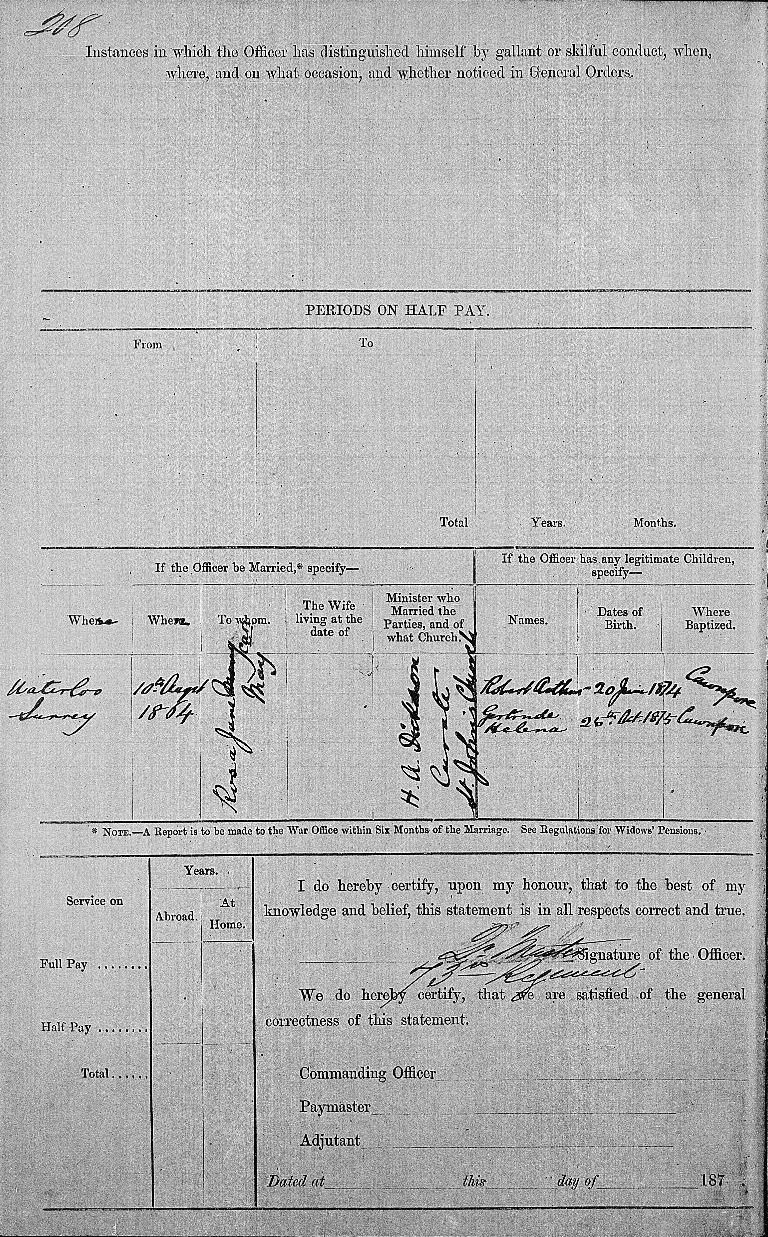 208
Instances in which the Officer has distinguished himself by gallant or skilful conduct, when,
where, and on what occasion, and whether noticed in General Orders.
PERIODS ON HALF PAY.
From To
Total Years. Months.
If the Officer be Married,* specify—
If the Officer has any legitimate Children,
specify—
Where
When
To whom.
The Wife
living at the
date of
Minister who
Married the
Parties, and of
what Church.
Names.
Dates of
Birth.
Where
Baptized.
Waterloo
Surrey
10th Augst
1864
Rosa Jane
May
H. A. Dickson
Curate
St. John's Church
Robert Arthur 20 June 1874 Cawnpore
Gertrude
Helena 26th Oct. 1875 Cawnpore
* NOTE.—A Report is to be made to the War Office within Six Months of the Marriage. See Regulations for Widows' Pensions.
Service on
Years.
Abroad.
At
Home.
Full Pay ........
Half Pay ........
Total ......
I do hereby certify, upon my honour, that to the best of my
knowledge and belief, this statement is in all respects correct and true.
Qr. Master
Signature of the Officer.
73rd Regiment
We do hereby certify, that we are satisfied of the general
correctness of this statement.
Commanding Officer
Paymaster
Adjutant
Dated at this day of 187